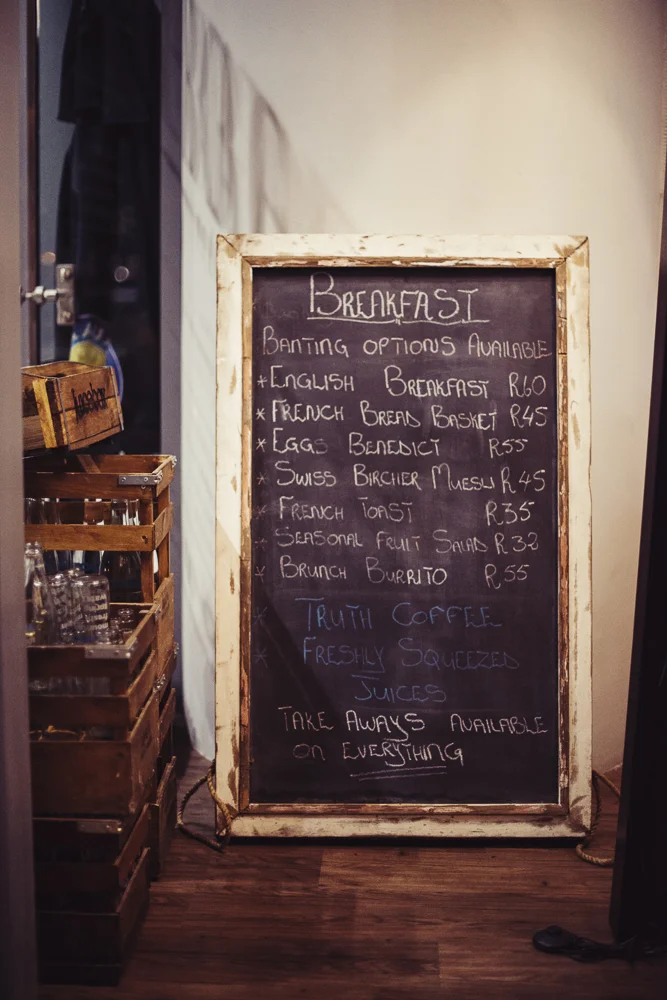 BREAKFAST
BANTING OPTIONS AVAILABLE
* ENGLISH BREAKFAST R60
* FRENCH BREAD BASKET R45
* EGGS BENEDICT R55
* SWISS BIRCHER MUESLI R45
* FRENCH TOAST R35
* SEASONAL FRUIT SALAD R32
* BRUNCH BURRITO R55
* TRUTH COFFEE
* FRESHLY SQUEEZED
JUICES
TAKE AWAYS AVAILABLE
ON EVERYTHING